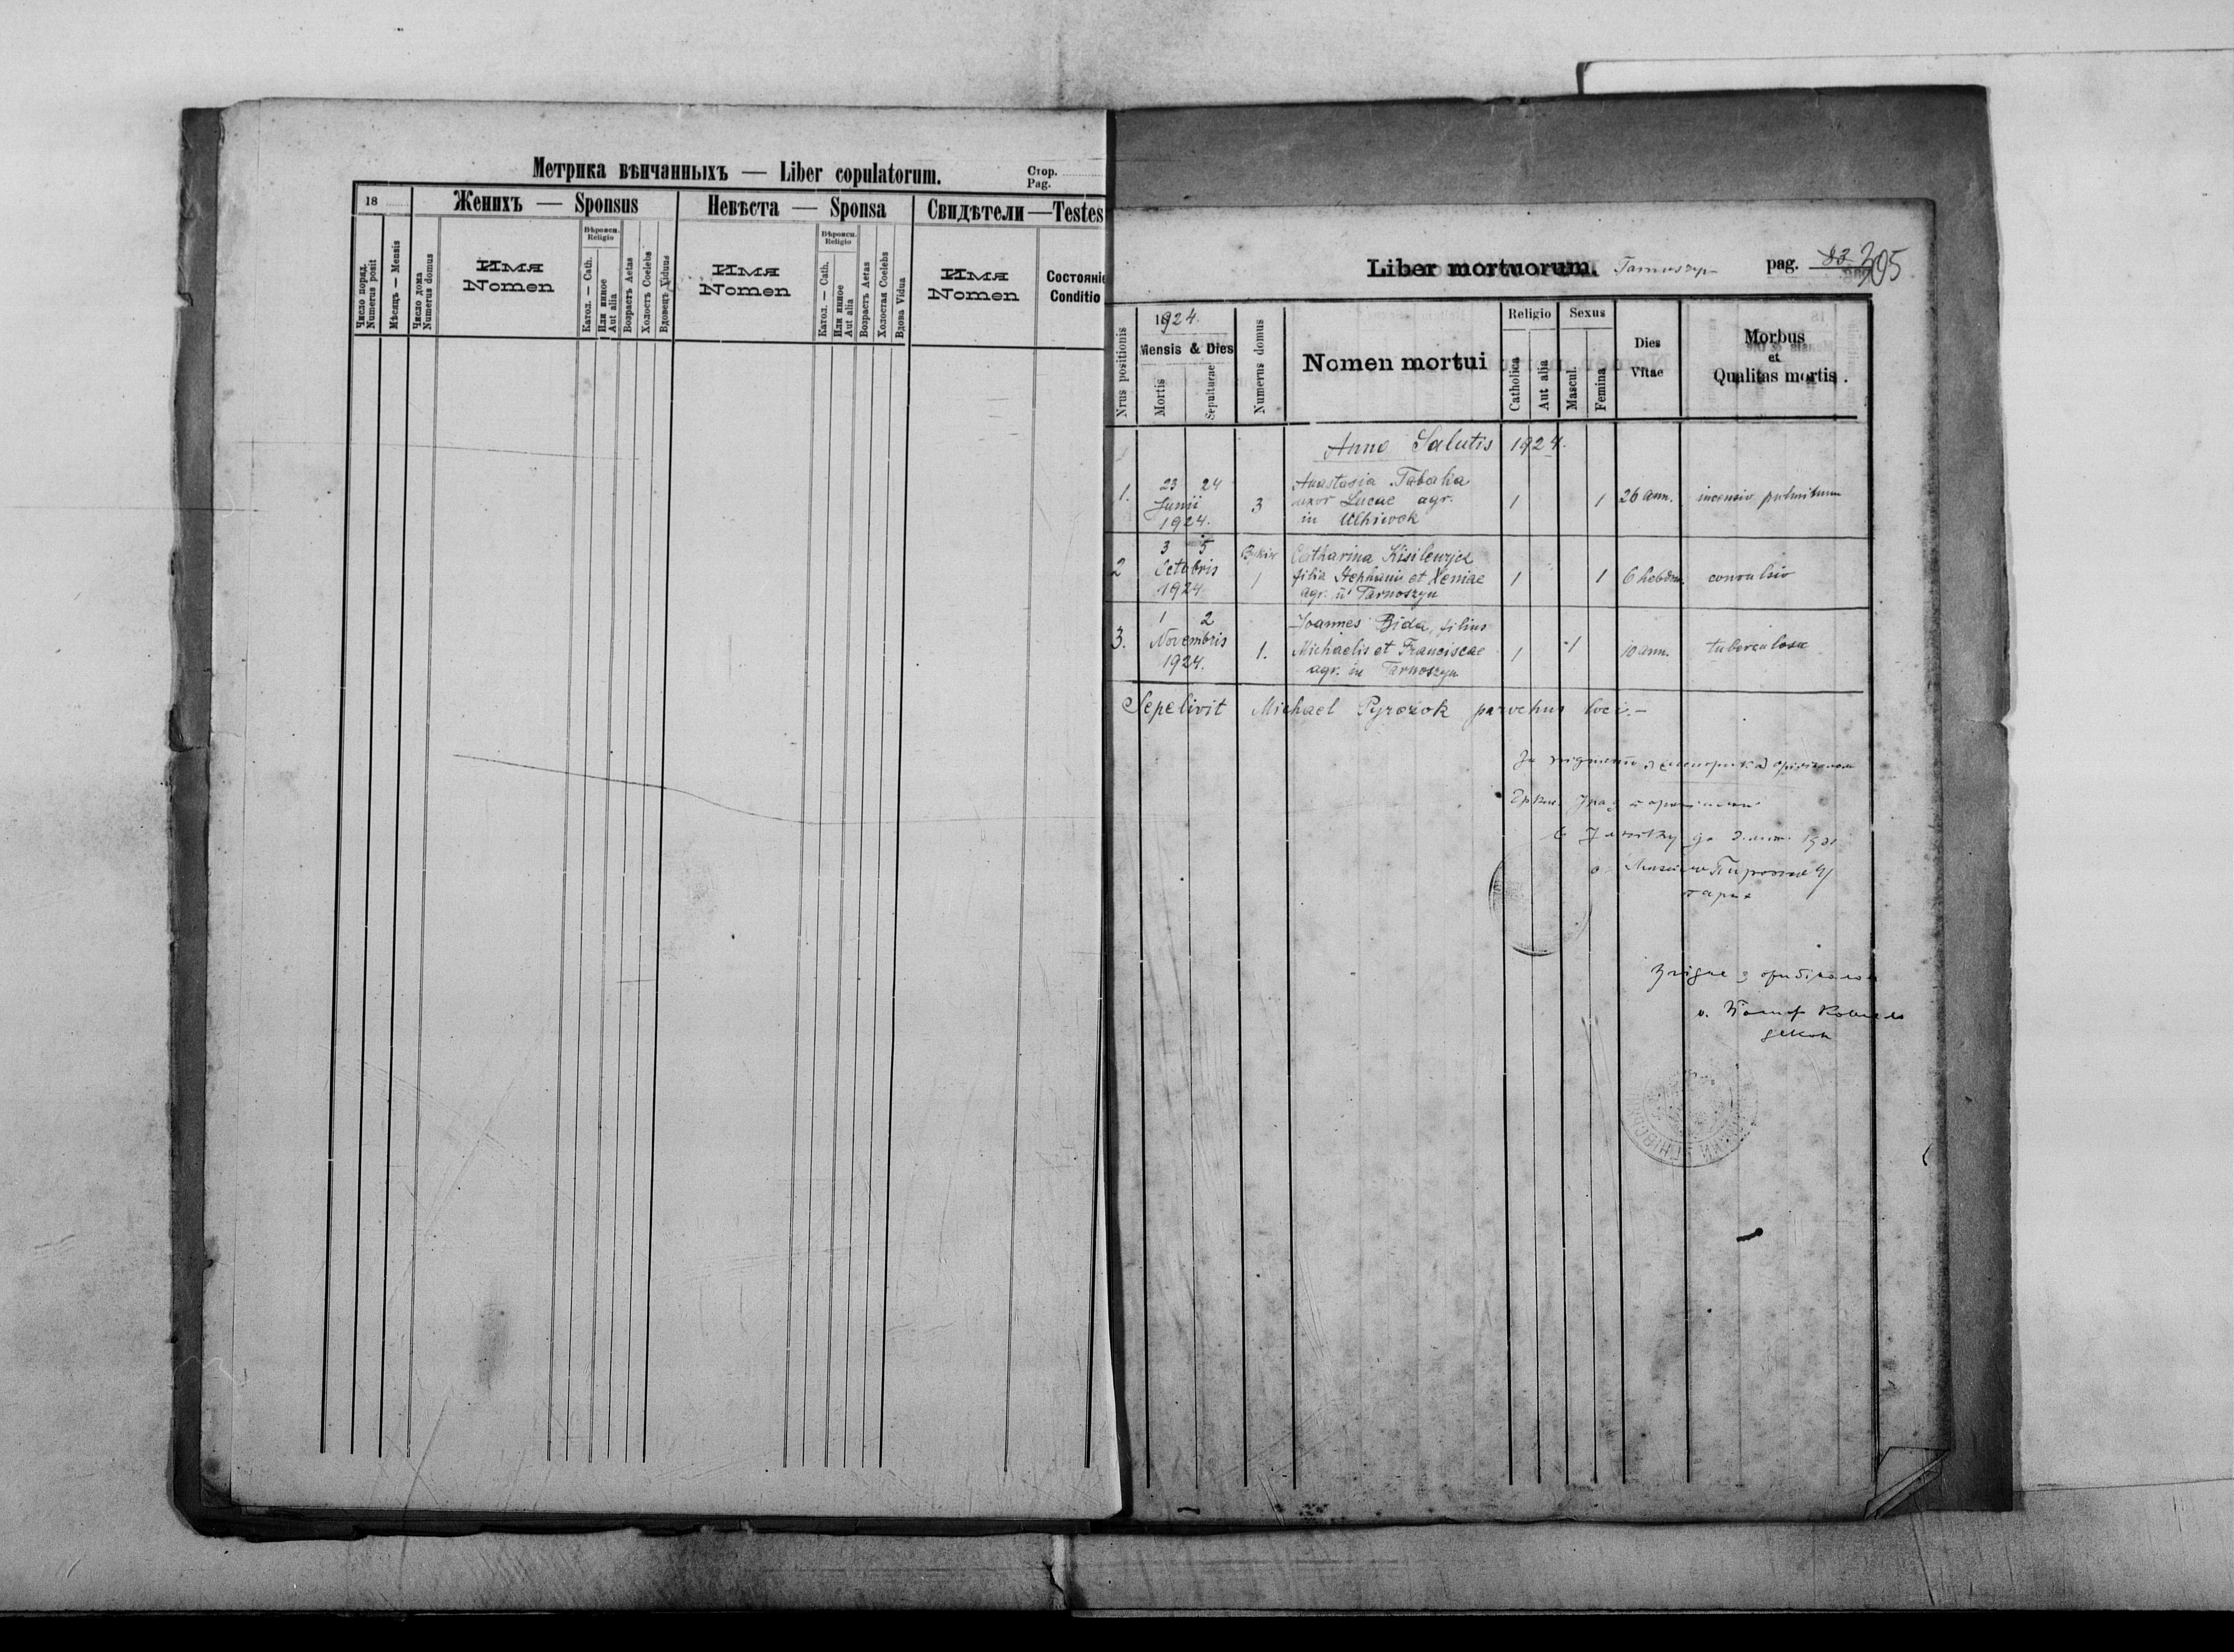 Метрика вѣнчанныхъ — Liber copulatorum.
Стор.
Pag.
18
Женихъ — Sponsus
Невѣста — Sponsa
Свидѣтели — Testes
Число поряд.
Numerus posit
Мѣсяцъ — Mensis
Число дома
Numerus domus
Имя
Nomen
Вѣроисп.
Religio
Катол. — Cath.
Или инное
Aut alia
Возрастъ Aetas
Холостъ Coelebs
Вдовецъ Viduus
Имя
Nomen
Вѣроисп.
Religio
Катол. — Cath.
Или инное
Aut alia
Возрастъ Aetas
Холостая Coelebs
Вдова Vidua
Имя
Nomen
Состояніе
Conditio
Liber mortuorum. Tarnoszyn
pag. 83 305
Nrus positionis
1924.
Mensis & Dies
Mortis
Sepulturae
Numerus domus
Nomen mortui
Religio
Catholica
Aut alia
Sexus
Mascul.
Femina
Dies
Vitae
Morbus
et
Qualitas mortis.
Anno Salutis 1924.
1. 23 24 Junii 1924. 3 Anastasia Tabaka 1 1 26 ann.
uxor Lucae agr.
in Ulhiwok
2 3 5 Octobris 1924 1 Catharina Kisilewycz 1 1 6 hebdm. convulsio
filia Stephani et Xeniae
agr. in Tarnoszyn
3. 1 2 Novembris 1924. 1. Joannes Bida, filius 1 1 10 ann. tuberculosa
Michaelis et Franciscae
agr. in Tarnoszyn
Sepelivit Michael Pyrozok parochus loci.—
1921
о.
парох
Згідне з
о. Йосиф
декан